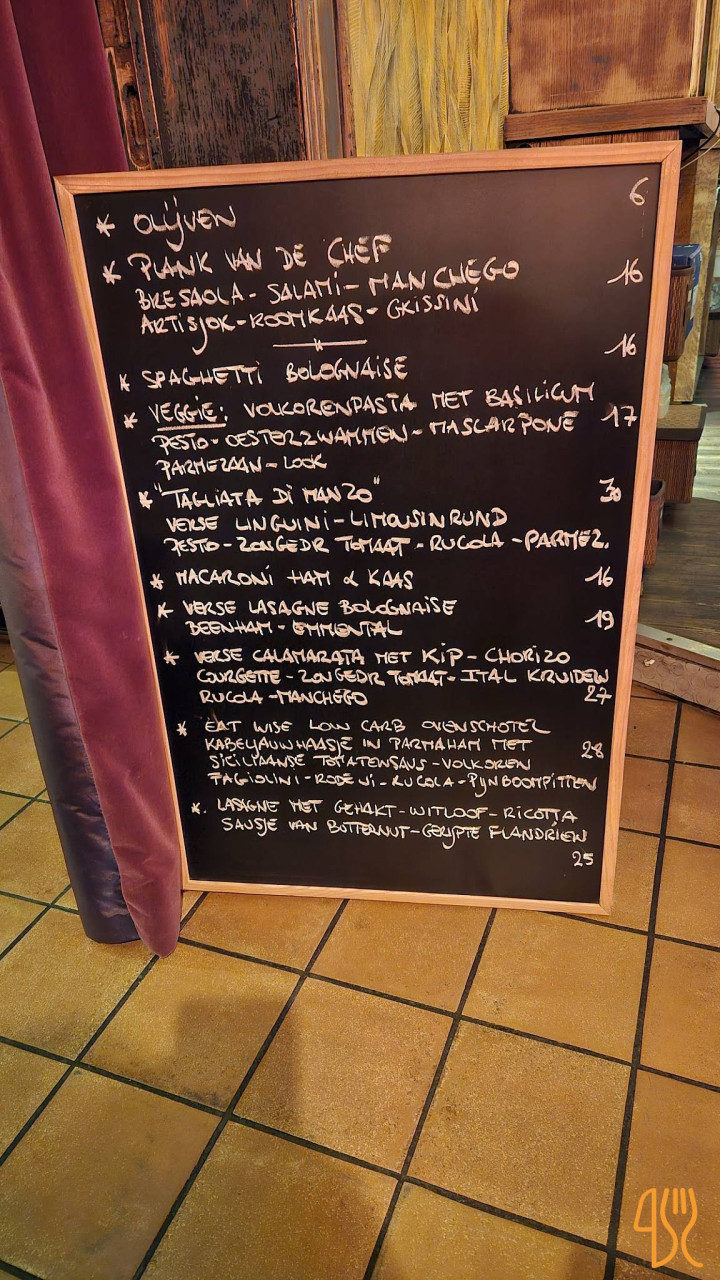 * OLIJVEN 6
* PLANK VAN DE CHEF
BRESAOLA - SALAMI - MANCHEGO 16
ARTISJOK - ROOMKAAS - GRISSINI
* SPAGHETTI BOLOGNAISE 16
* VEGGIE: VOLKORENPASTA MET BASILICUM
PESTO - OESTERZZWAMMEN - MASCARPONE 17
PARMEZAAN - LOOK
* "TAGLIATA DI MANZO" 30
VERSE LINGUINI - LIMOUSIN RUND
PESTO - ZONGEDR TOMAAT - RUCOLA - PARMEZ.
* MACARONI HAM & KAAS 16
* VERSE LASAGNE BOLOGNAISE
BEENHAM - EMMENTAL 19
* VERSE CALAMARATA MET KIP - CHORIZO
COURGETTE - ZONGEDR TOMAAT - ITAL KRUIDEN
RUCOLA - MANCHEGO 27
* EAT WISE LOW CARB OVENSCHOTEL
KABELJAUWHAASJE IN PARMAHAM MET
SICILIAANSE TOMATENSAUS - VOLKOREN 28
TAGIOLINI - RODE UI - RUCOLA - PIJNBOOMPITTEN
* LASAGNE MET GEHAKT - WITLOOF - RICOTTA
SAUSJE VAN BUTTERNUT - GERIJPTE FLANDRIEN
25